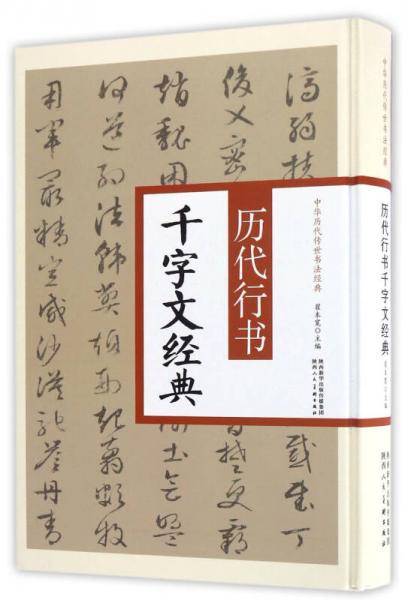 濟弱扶
感武丁
俊乂密
楚更霸
趙魏困
土會盟
何遵約法韓弊煩刑起翦頗牧
用軍最精宣威沙漠馳譽丹青
中华历代传世书法经典
历代行书
千字文经典
翟本宽◎主编
陕西新华出版传媒集团
陕西人民美术出版社
中华历代传世书法经典
历代行书千字文经典
翟本宽◎主编
陕西新华出版传媒集团
陕西人民美术出版社